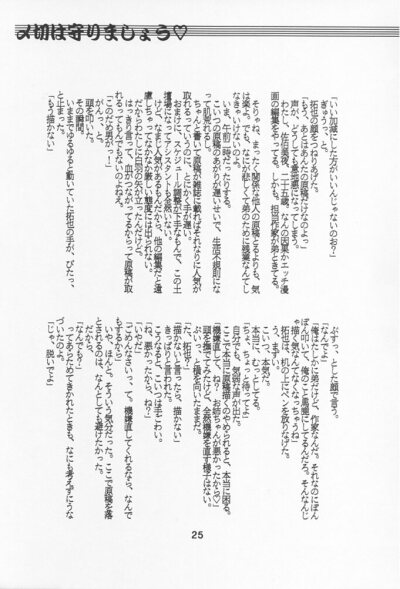 〆切は守りましょう♡
「いい加減にした方がいいんじゃないのお？」
ぎゅっと。
拓也の顔をつねりあげた。
「もう、あとはあんたの原稿だけなのよっ」
声が、どうしても意地悪になってしまう。
わたし、佐伯美夜、二十五歳。なんの因果かエッチ漫
画の編集をやってる。しかも、担当作家が弟ときてる。
そりゃね、まったく関係な他人の原稿とるよりも、気
は楽よ。でも、なにが悲しくて弟のために残業なんてし
なきゃいけないのよ。
いま、午前一時だったりする。
こいつの原稿のあがりが遅いせいで、生活不規則にな
って肌荒れるし。
ちゃんと書いて原稿が雑誌に載ればそれなりに人気が
取れるっていうのに、とにかく手が遅い。
おまけに、スケジュール調整が下手なもんで、この土
壇場になってアシスタントも全然いない。
けど、なまじ人気があるもんだから、他の編集だと遠
慮しちゃってなかなか厳しい態度には出られない。
だからわたしに白羽の矢が立ったんだけど。
はっきり言って、血がつながってるからって原稿が取
れるってもんでもないのよねえ。
「このだめ男がっ！」
がんっ、と。
頭を叩いた。
その瞬間。
いままでゆるゆると動いていた拓也の手が、ぴたっ、
と止まった。
「もう描かない」
ぶすっ、とした顔で言う。
「俺はたしかに弟だけど、作家なんだ。それなのにぽん
ぽん叩いて、俺のこと馬鹿にしてるんだろ。そんなんじ
ゃ描く気なんてなくなっちゃうね」
拓也は、机の上にペンを放りなげた。
う、まずい。
こいつ、本気だ。
本当に、むっとしてる。
「ちょ、ちょっと待ってよ」
自分でも、気弱な声が出た。
本当に原稿描くのやめられると、本当に困る。
「機嫌直して、ね？ お姉ちゃんが悪かったから♡」
頭を撫でてみたけど、全然機嫌を直す様子はない。
ぷいっ、と横を向いたままだ。
「た、拓也？」
「描かないと言ったら、描かない」
きっぱりと言われた。
こうなると、こいつは手ごわい。
「ね、悪かったから、ね？」
「いやだ」
「ごめんなさいっ、って。機嫌直してくれるなら、なんで
もするから」
いや、ほんと。そういう気分だった。ここで原稿を落
とされるのは、なんとしても避けたかった。
だから。
「なんでも？」
ってあらためてきかれたときも、なにも考えずにうな
づいたのよ。
「じゃ、脱いでよ」
25